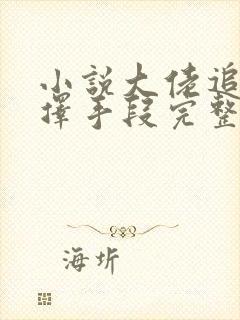 小說大佬追
擇手段完整
海圻